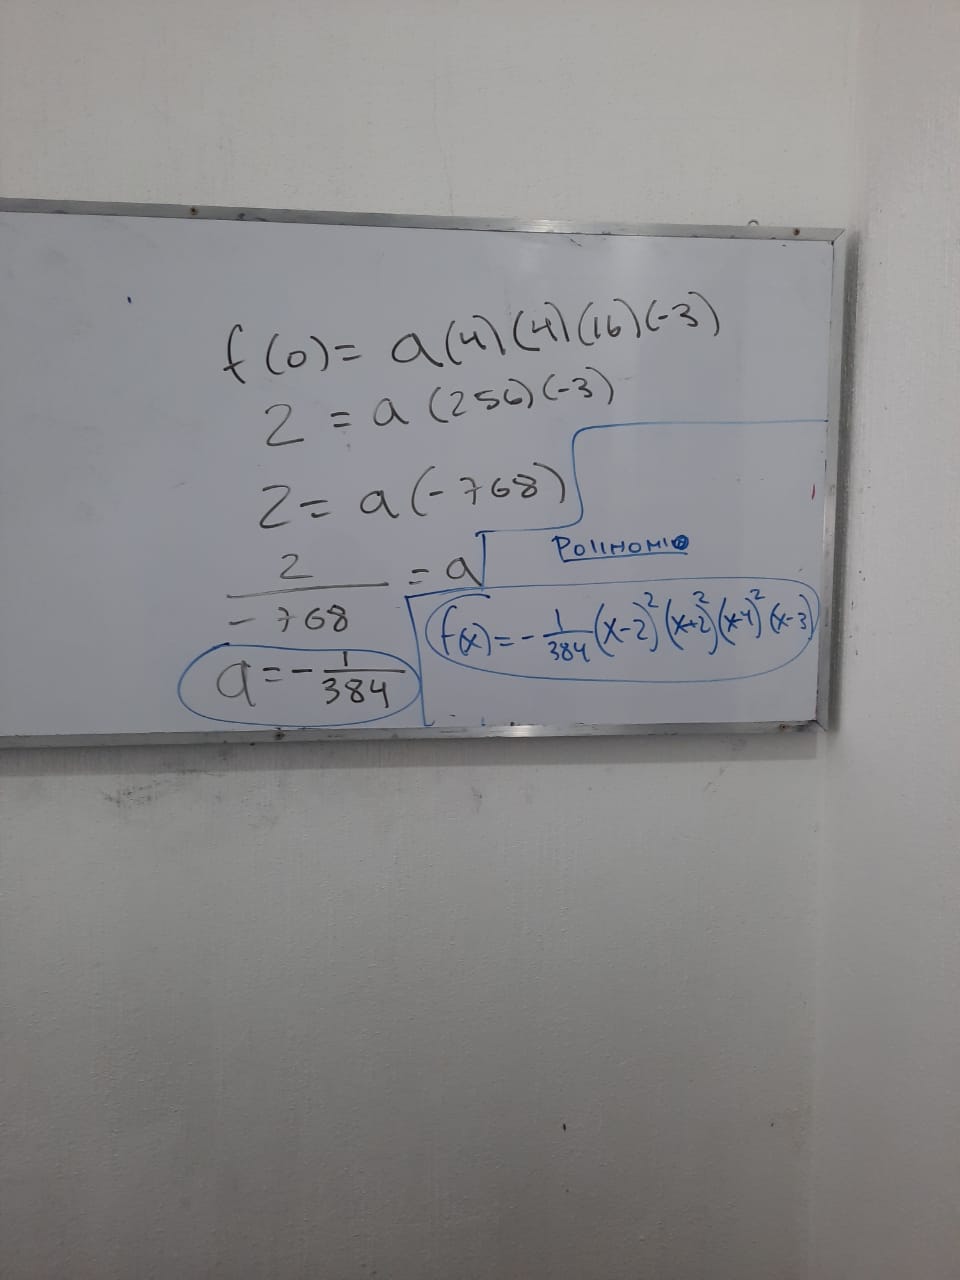 f(0) = a(4)(4)(16)(-3)
2 = a(256)(-3)
2 = a(-768)
2/-768 = a
a = -1/384
Polinomio
f(x) = -1/384 (x-2)² (x+2)² (x-4)² (x-3)